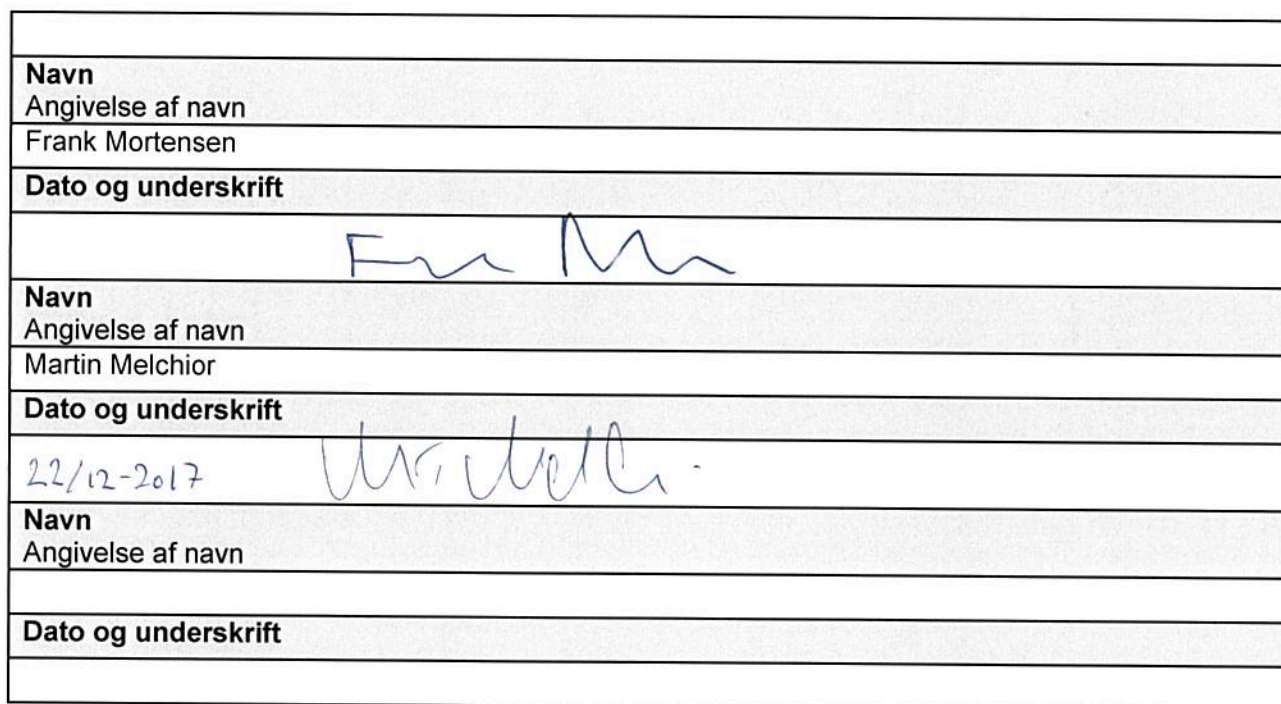 Navn
Angivelse af navn
Frank Mortensen
Dato og underskrift
Navn
Angivelse af navn
Martin Melchior
Dato og underskrift
22/12-2017
Navn
Angivelse af navn
Dato og underskrift